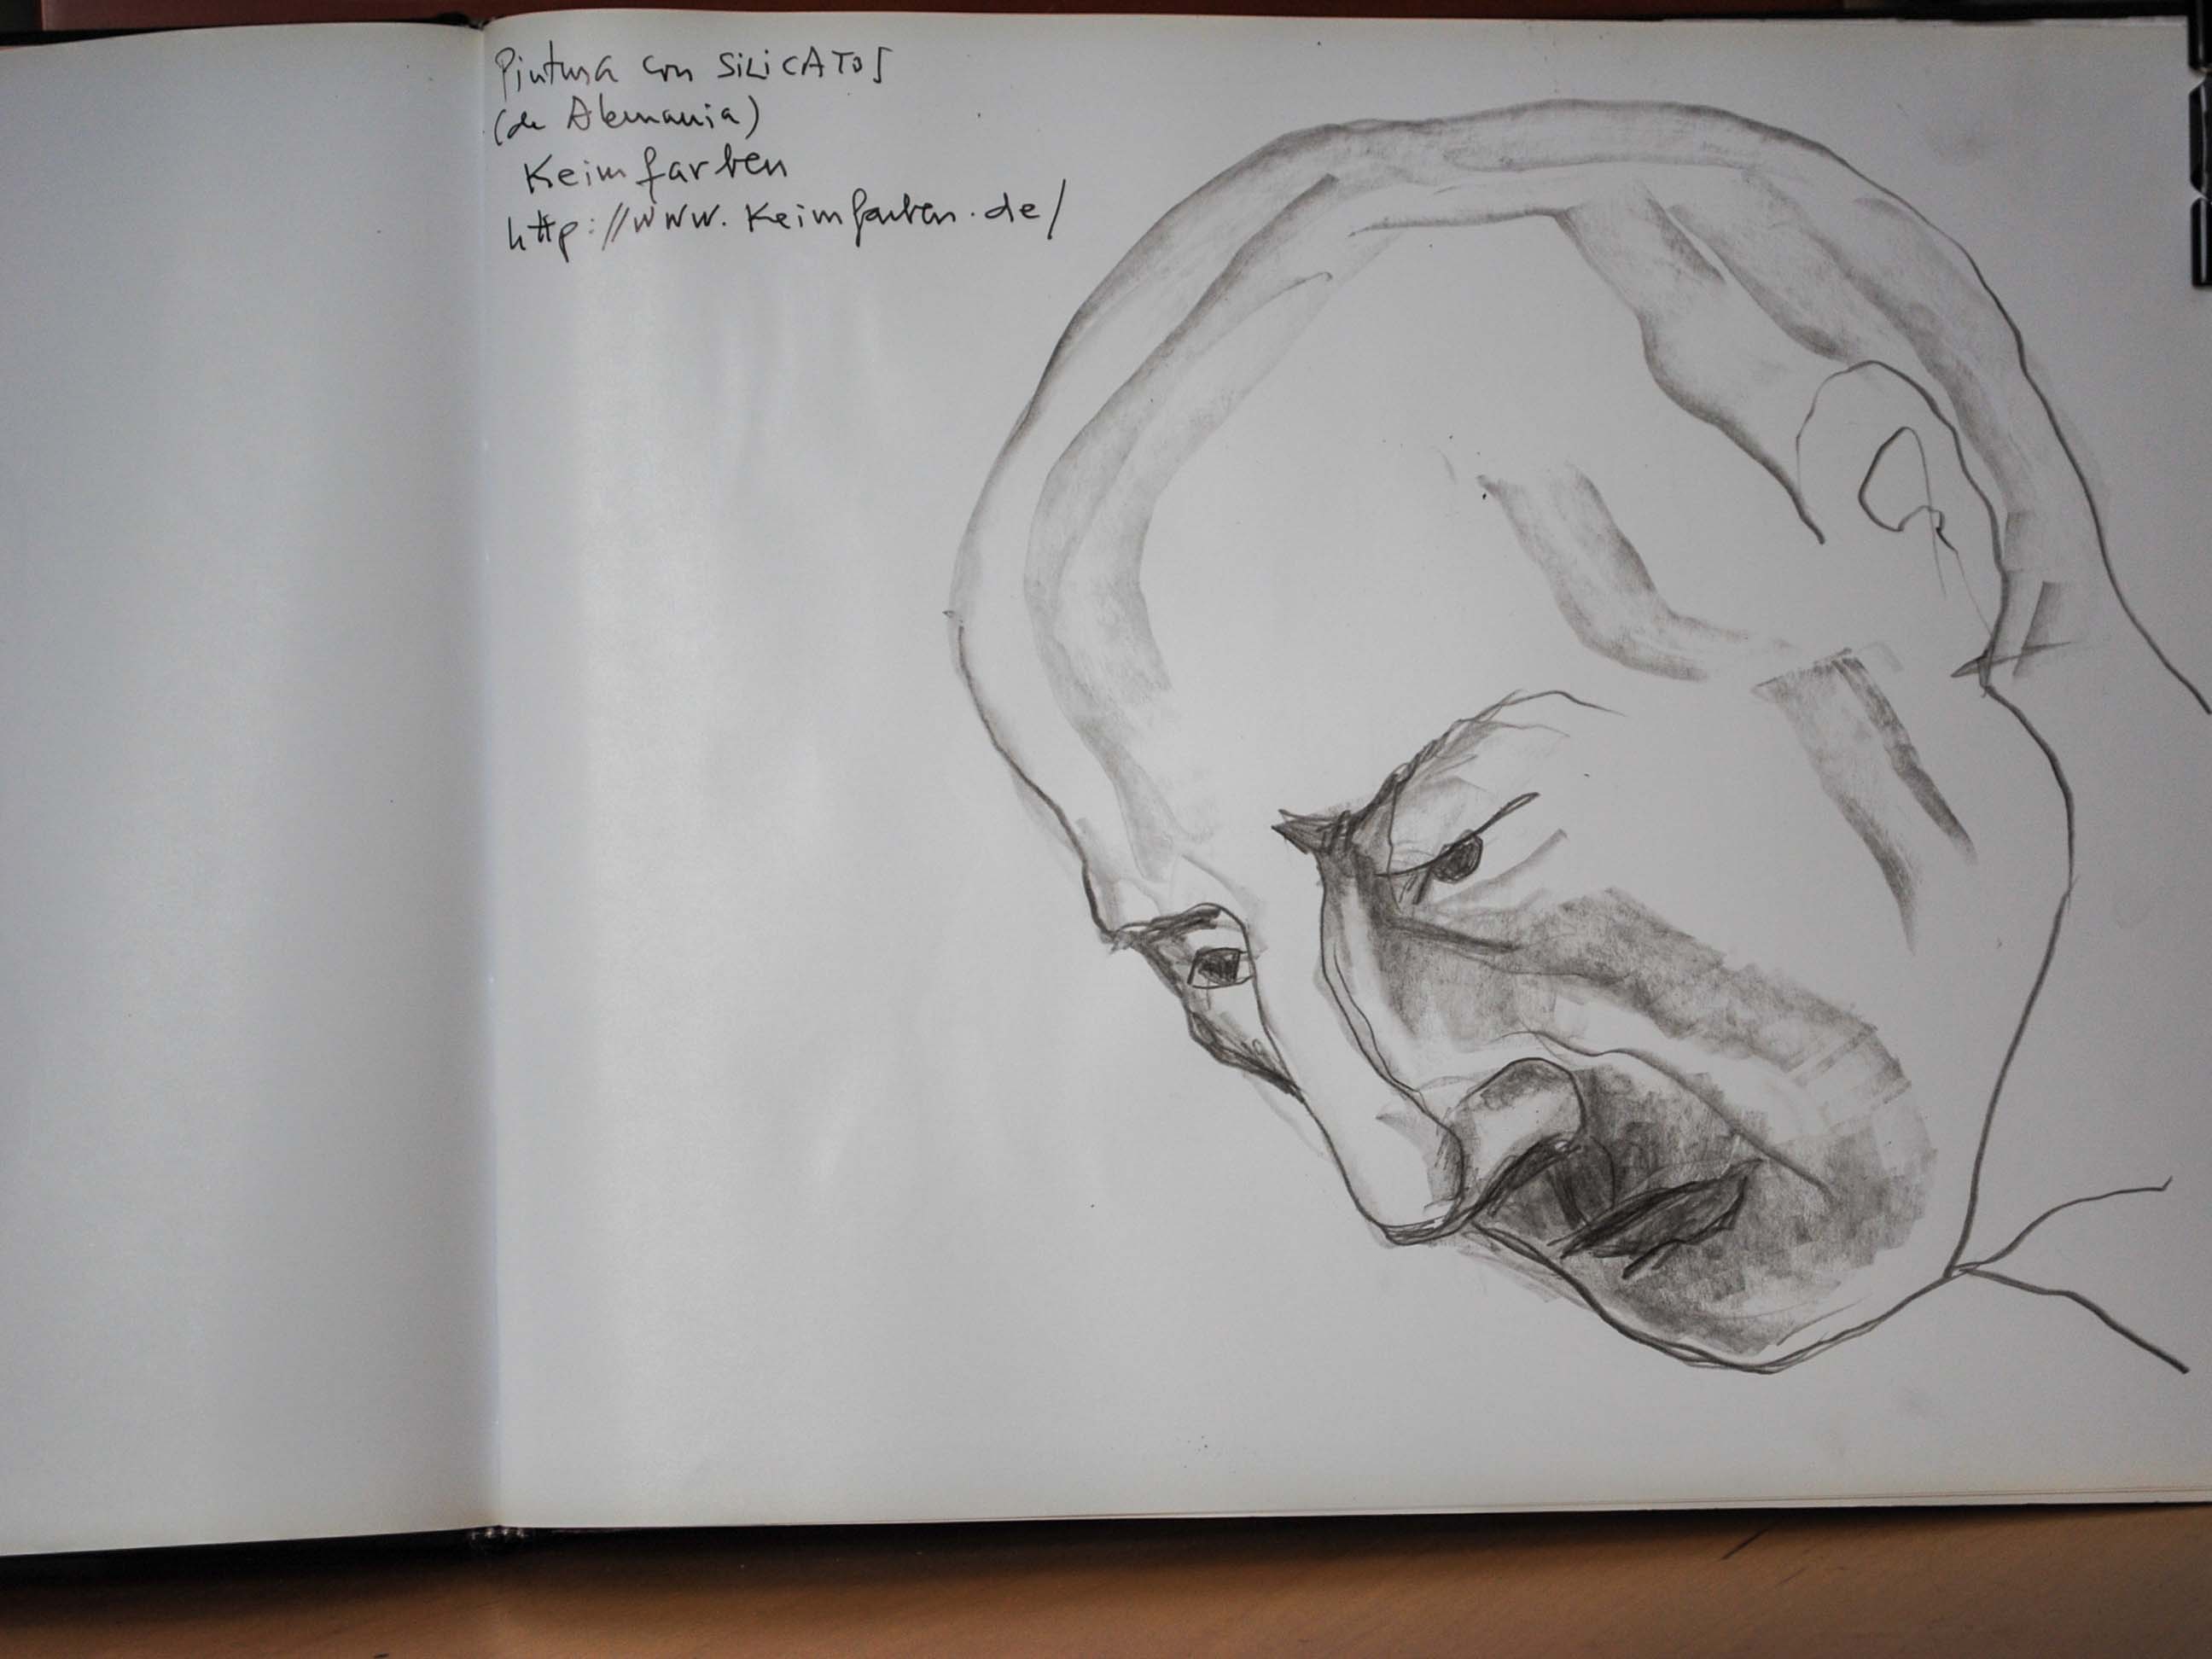 Pintura con SiLiCATOS
(de Alemania)
Keimfarben
http://www.Keimfarben.de/